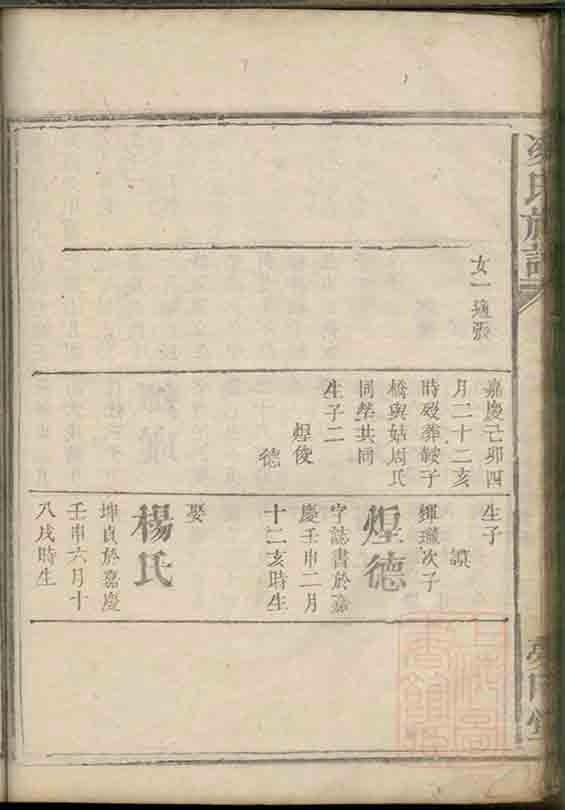 氏族譜
女一適張
嘉慶己卯四
月二十二亥
時歿葬鞍子
橋與姑周氏
同塋共同
生子二
煌俊
德
生子
謨
輝瓏次子
煌德
字誌書於嘉
慶壬申二月
十二亥時生
娶
楊氏
坤貞於嘉慶
壬申六月十
八戌時生